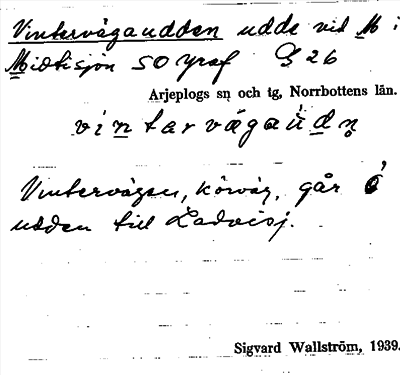 Vintervägaudden udde vid M i
Midtisjön SO Yraf G 26
Arjeplogs sn och tg, Norrbottens län.
vintarvägaùdn̥
Vintervägen, körväg, går
udden till Ladvisj.
Sigvard Wallström, 1939.